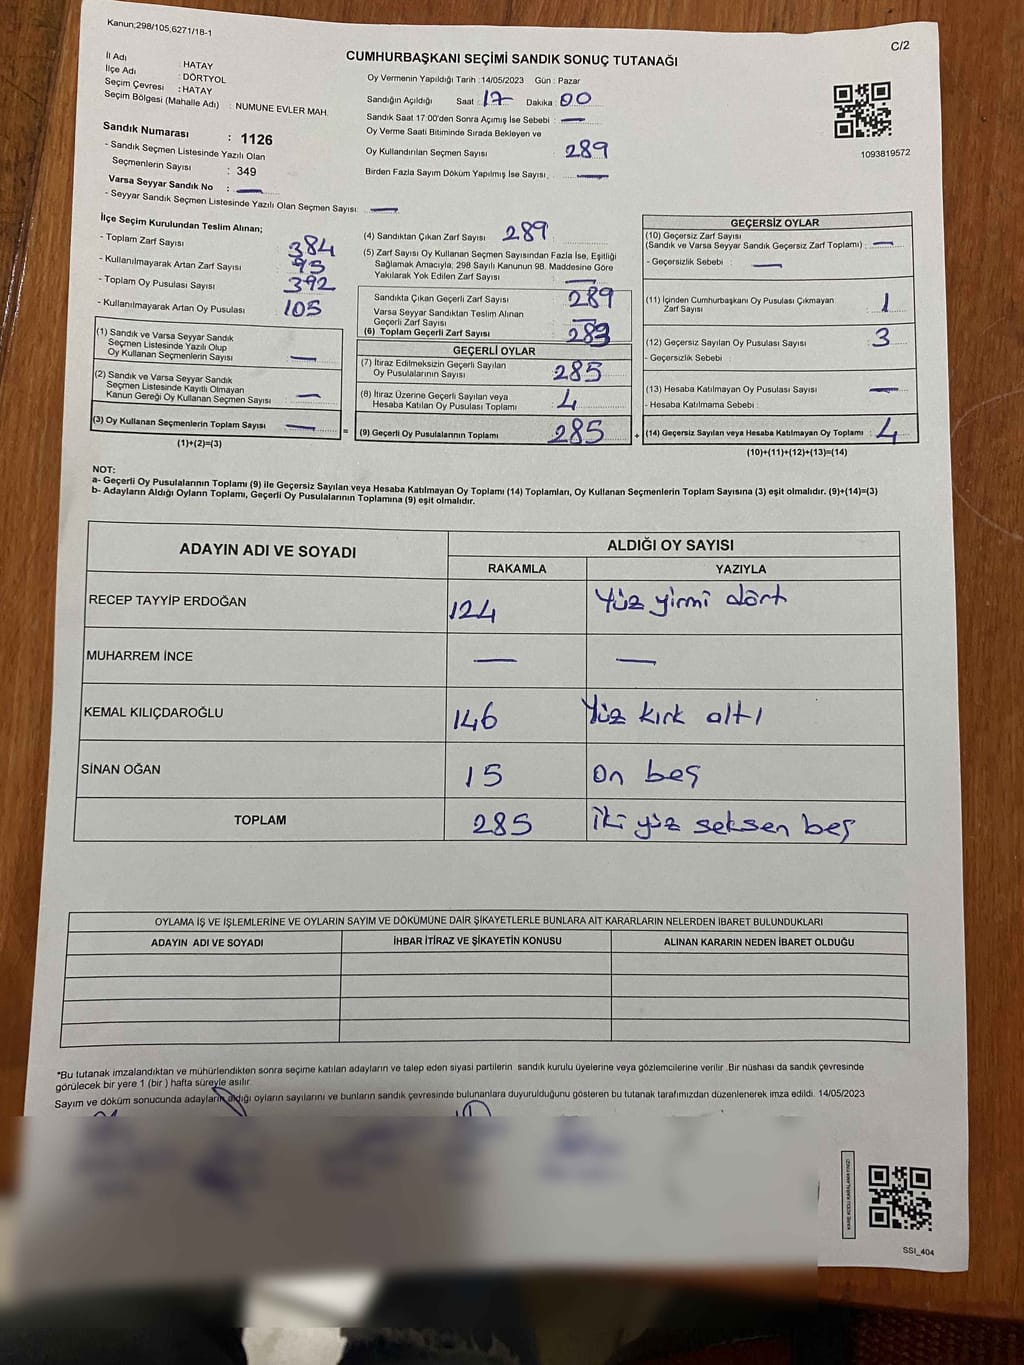 Kanun;298/105,6271/18-1
C/2
CUMHURBAŞKANI SEÇİMİ SANDIK SONUÇ TUTANAĞI
İl Adı : HATAY
İlçe Adı : DÖRTYOL
Seçim Çevresi : HATAY
Seçim Bölgesi (Mahalle Adı) : NUMUNE EVLER MAH.
Sandık Numarası : 1126
- Sandık Seçmen Listesinde Yazılı Olan
Seçmenlerin Sayısı : 349
Varsa Seyyar Sandık No : —
- Seyyar Sandık Seçmen Listesinde Yazılı Olan Seçmen Sayısı: —
Oy Vermenin Yapıldığı Tarih : 14/05/2023 Gün : Pazar
Sandığın Açıldığı Saat : 17 Dakika : 00
Sandık Saat 17:00'den Sonra Açımış İse Sebebi : —
Oy Verme Saati Bitiminde Sırada Bekleyen ve
Oy Kullandırılan Seçmen Sayısı 289
Birden Fazla Sayım Döküm Yapılmış İse Sayısı. —
1093819572
İlçe Seçim Kurulundan Teslim Alınan;
- Toplam Zarf Sayısı 384
- Kullanılmayarak Artan Zarf Sayısı 95
- Toplam Oy Pusulası Sayısı 392
- Kullanılmayarak Artan Oy Pusulası 105
(1) Sandık ve Varsa Seyyar Sandık
Seçmen Listesinde Yazılı Olup
Oy Kullanan Seçmenlerin Sayısı —
(2) Sandık ve Varsa Seyyar Sandık
Seçmen Listesinde Kayıtlı Olmayan
Kanun Gereği Oy Kullanan Seçmen Sayısı —
(3) Oy Kullanan Seçmenlerin Toplam Sayısı —
(1)+(2)=(3)
(4) Sandıktan Çıkan Zarf Sayısı 289
(5) Zarf Sayısı Oy Kullanan Seçmen Sayısından Fazla İse, Eşitliği
Sağlamak Amacıyla, 298 Sayılı Kanunun 98. Maddesine Göre
Yakılarak Yok Edilen Zarf Sayısı —
Sandıkta Çıkan Geçerli Zarf Sayısı 289
Varsa Seyyar Sandıktan Teslim Alınan
Geçerli Zarf Sayısı —
(6) Toplam Geçerli Zarf Sayısı 289
GEÇERLİ OYLAR
(7) İtiraz Edilmeksizin Geçerli Sayılan
Oy Pusulalarının Sayısı 285
(8) İtiraz Üzerine Geçerli Sayılan veya
Hesaba Katılan Oy Pusulası Toplamı 4
= (9) Geçerli Oy Pusulalarının Toplamı 285
GEÇERSİZ OYLAR
(10) Geçersiz Zarf Sayısı
(Sandık ve Varsa Seyyar Sandık Geçersiz Zarf Toplamı) : —
- Geçersizlik Sebebi : —
(11) İçinden Cumhurbaşkanı Oy Pusulası Çıkmayan
Zarf Sayısı 1
(12) Geçersiz Sayılan Oy Pusulası Sayısı 3
- Geçersizlik Sebebi :
(13) Hesaba Katılmayan Oy Pusulası Sayısı —
- Hesaba Katılmama Sebebi :
+ (14) Geçersiz Sayılan veya Hesaba Katılmayan Oy Toplamı : 4
(10)+(11)+(12)+(13)=(14)
NOT:
a- Geçerli Oy Pusulalarının Toplamı (9) ile Geçersiz Sayılan veya Hesaba Katılmayan Oy Toplamı (14) Toplamları, Oy Kullanan Seçmenlerin Toplam Sayısına (3) eşit olmalıdır. (9)+(14)=(3)
b- Adayların Aldığı Oyların Toplamı, Geçerli Oy Pusulalarının Toplamına (9) eşit olmalıdır.
ADAYIN ADI VE SOYADI
ALDIĞI OY SAYISI
RAKAMLA YAZIYLA
RECEP TAYYİP ERDOĞAN 124 Yüz yirmi dört
MUHARREM İNCE — —
KEMAL KILIÇDAROĞLU 146 Yüz kırk altı
SİNAN OĞAN 15 on beş
TOPLAM 285 iki yüz seksen beş
OYLAMA İŞ VE İŞLEMLERİNE VE OYLARIN SAYIM VE DÖKÜMÜNE DAİR ŞİKAYETLERLE BUNLARA AİT KARARLARIN NELERDEN İBARET BULUNDUKLARI
ADAYIN ADI VE SOYADI İHBAR İTİRAZ VE ŞİKAYETİN KONUSU ALINAN KARARIN NEDEN İBARET OLDUĞU
*Bu tutanak imzalandıktan ve mühürlendikten sonra seçime katılan adayların ve talep eden siyasi partilerin sandık kurulu üyelerine veya gözlemcilerine verilir .Bir nüshası da sandık çevresinde
görülecek bir yere 1 (bir ) hafta süreyle asılır.
Sayım ve döküm sonucunda adayların aldığı oyların sayılarını ve bunların sandık çevresinde bulunanlara duyurulduğunu gösteren bu tutanak tarafımızdan düzenlenerek imza edildi. 14/05/2023
SSI_404